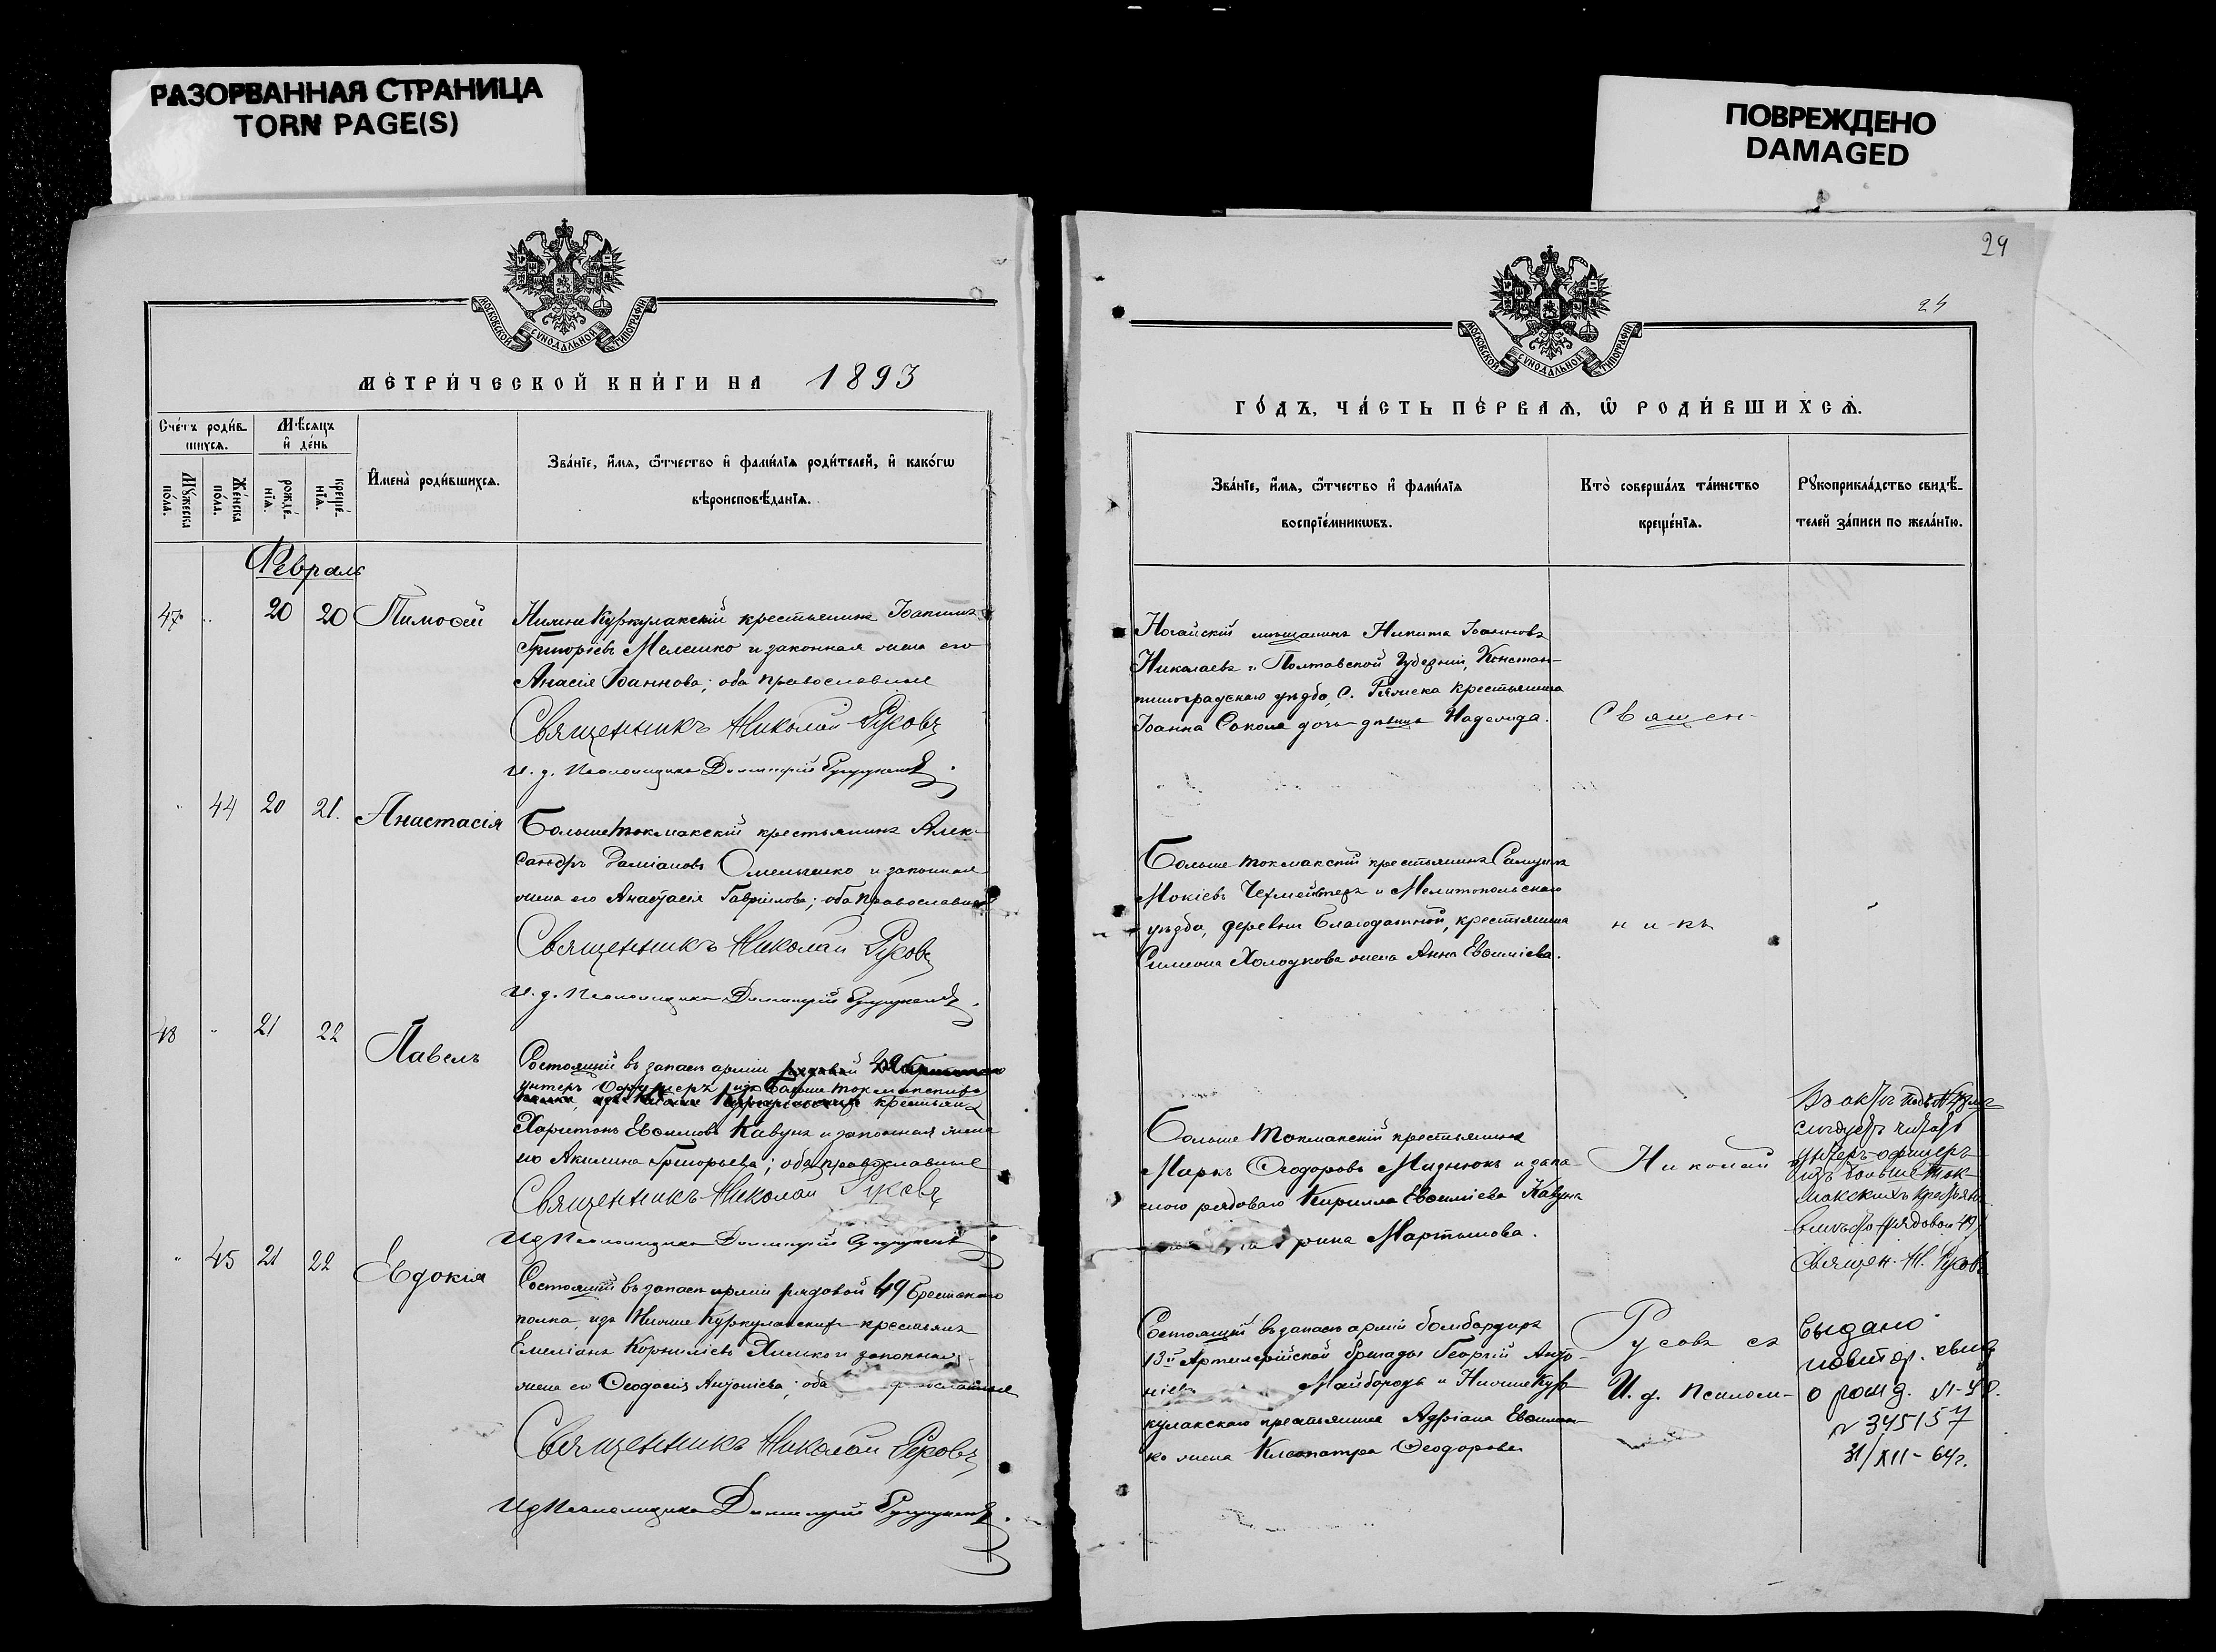 РАЗОРВАННАЯ СТРАНИЦА
TORN PAGE(S)
ПОВРЕЖДЕНО
DAMAGED
МОСКОВСКОЙ СѴНОДАЛЬНОЙ ТИПОГРАФІИ
МЕТРИ́ЧЕСКОЙ КНИ́ГИ НА 1893
Сче́тъ роди́в-
шихсѧ.
Мѣ́сѧцъ
и҆ де́нь
Мꙋ́жеска
по́ла.
Же́нска
по́ла.
рожде́-
нїѧ.
креще́-
нїѧ.
И҆мена̀ роди́вшихсѧ.
Зва́нїе, и҆́мѧ, ѻ҆́тчество и҆ фами́лїѧ роди́телей, и҆ како́гѡ
вѣроисповѣ́данїѧ.
Февраль
47 " 20 20 Тимоѳей
Нижне Куркулакскій крестьянинъ Іоаннъ
Григоріевъ Мелешко и законная жена его
Анасія Іоаннова; оба православные
Священникъ Николай Русовъ
И. д. Псаломщика Димитрій
" 44 20 21. Анастасія
Большетокмакскій крестьянинъ Алек-
сандръ Даміановъ Омельченко и законная
жена его Анастасія Гавріилова; оба православные
Священникъ Николай Русовъ
И. д. Псаломщика Димитрій
48 " 21 22 Павелъ
Состоящій въ запасѣ арміи рядовой 49
унтеръ офицеръ изъ Больше Токмакскихъ
крестьянъ
Харитонъ Евѳиміевъ Кавунъ и законная жена
его Акилина Григорьева; оба православные
Священникъ Николай Русовъ
И д Псаломщика Димитрій
" 45 21 22 Евдокія
Состоящій въ запасѣ арміи рядовой 49 Брестскаго
полка, изъ Нижне Куркулакскихъ крестьянъ
Емеліанъ Корниліевъ и законная
жена его Ѳеодосія Антоніева; оба православные
Священникъ Николай Русовъ
И д Псаломщика Димитрій
29
24
МОСКОВСКОЙ СѴНОДАЛЬНОЙ ТИПОГРАФІИ
ГО́ДЪ, ЧА́СТЬ ПЕ́РВАѦ, Ѽ РОДИ́ВШИХСѦ.
Зва́нїе, и҆́мѧ, ѻ҆́тчество и҆ фами́лїѧ
воспрїе́мникѡвъ.
Кто̀ соверша́лъ та́инство
креще́нїѧ.
Рꙋкоприкла́дство свидѣ́-
телей за́писи по жела́нїю.
Ногайскій мѣщанинъ Никита Іоанновъ
Николаевъ и Полтавской Губерніи, Констан-
тиноградскаго уѣзда, с. крестьянина
Іоанна Сокола дочь дѣвица Надежда.
Священ-
Больше Токмакскій крестьянинъ
Мокіевъ и Мелитопольскаго
уѣзда, деревни Благодатной, крестьянина
Симеона Холодкова жена Анна Евѳиміева.
н и къ
Больше Токмакскій крестьянинъ
Маркъ Ѳеодоровъ и запа-
снаго рядоваго Кирилла Евѳиміева Кавуна
Мартынова.
Николай
Въ актѣ подъ № 48 мъ
слѣдуетъ читать
унтеръ-офицеръ
изъ Больше-Ток-
макскихъ крестьянъ
вмѣсто рядовой 49
Священ. Н. Русовъ
Состоящій въ запасѣ арміи бомбардиръ
13й Артиллерійской бригады Георгій Анто-
ніевъ Майборода и Нижне Кур-
кулакскаго крестьянина Адріана Евѳимен-
ко жена Клеопатра Ѳеодорова
Русовъ съ
И. д. Псалом-
Выдано
повтор. свид.
о рожд.
№ 345157
31/XII-64г.